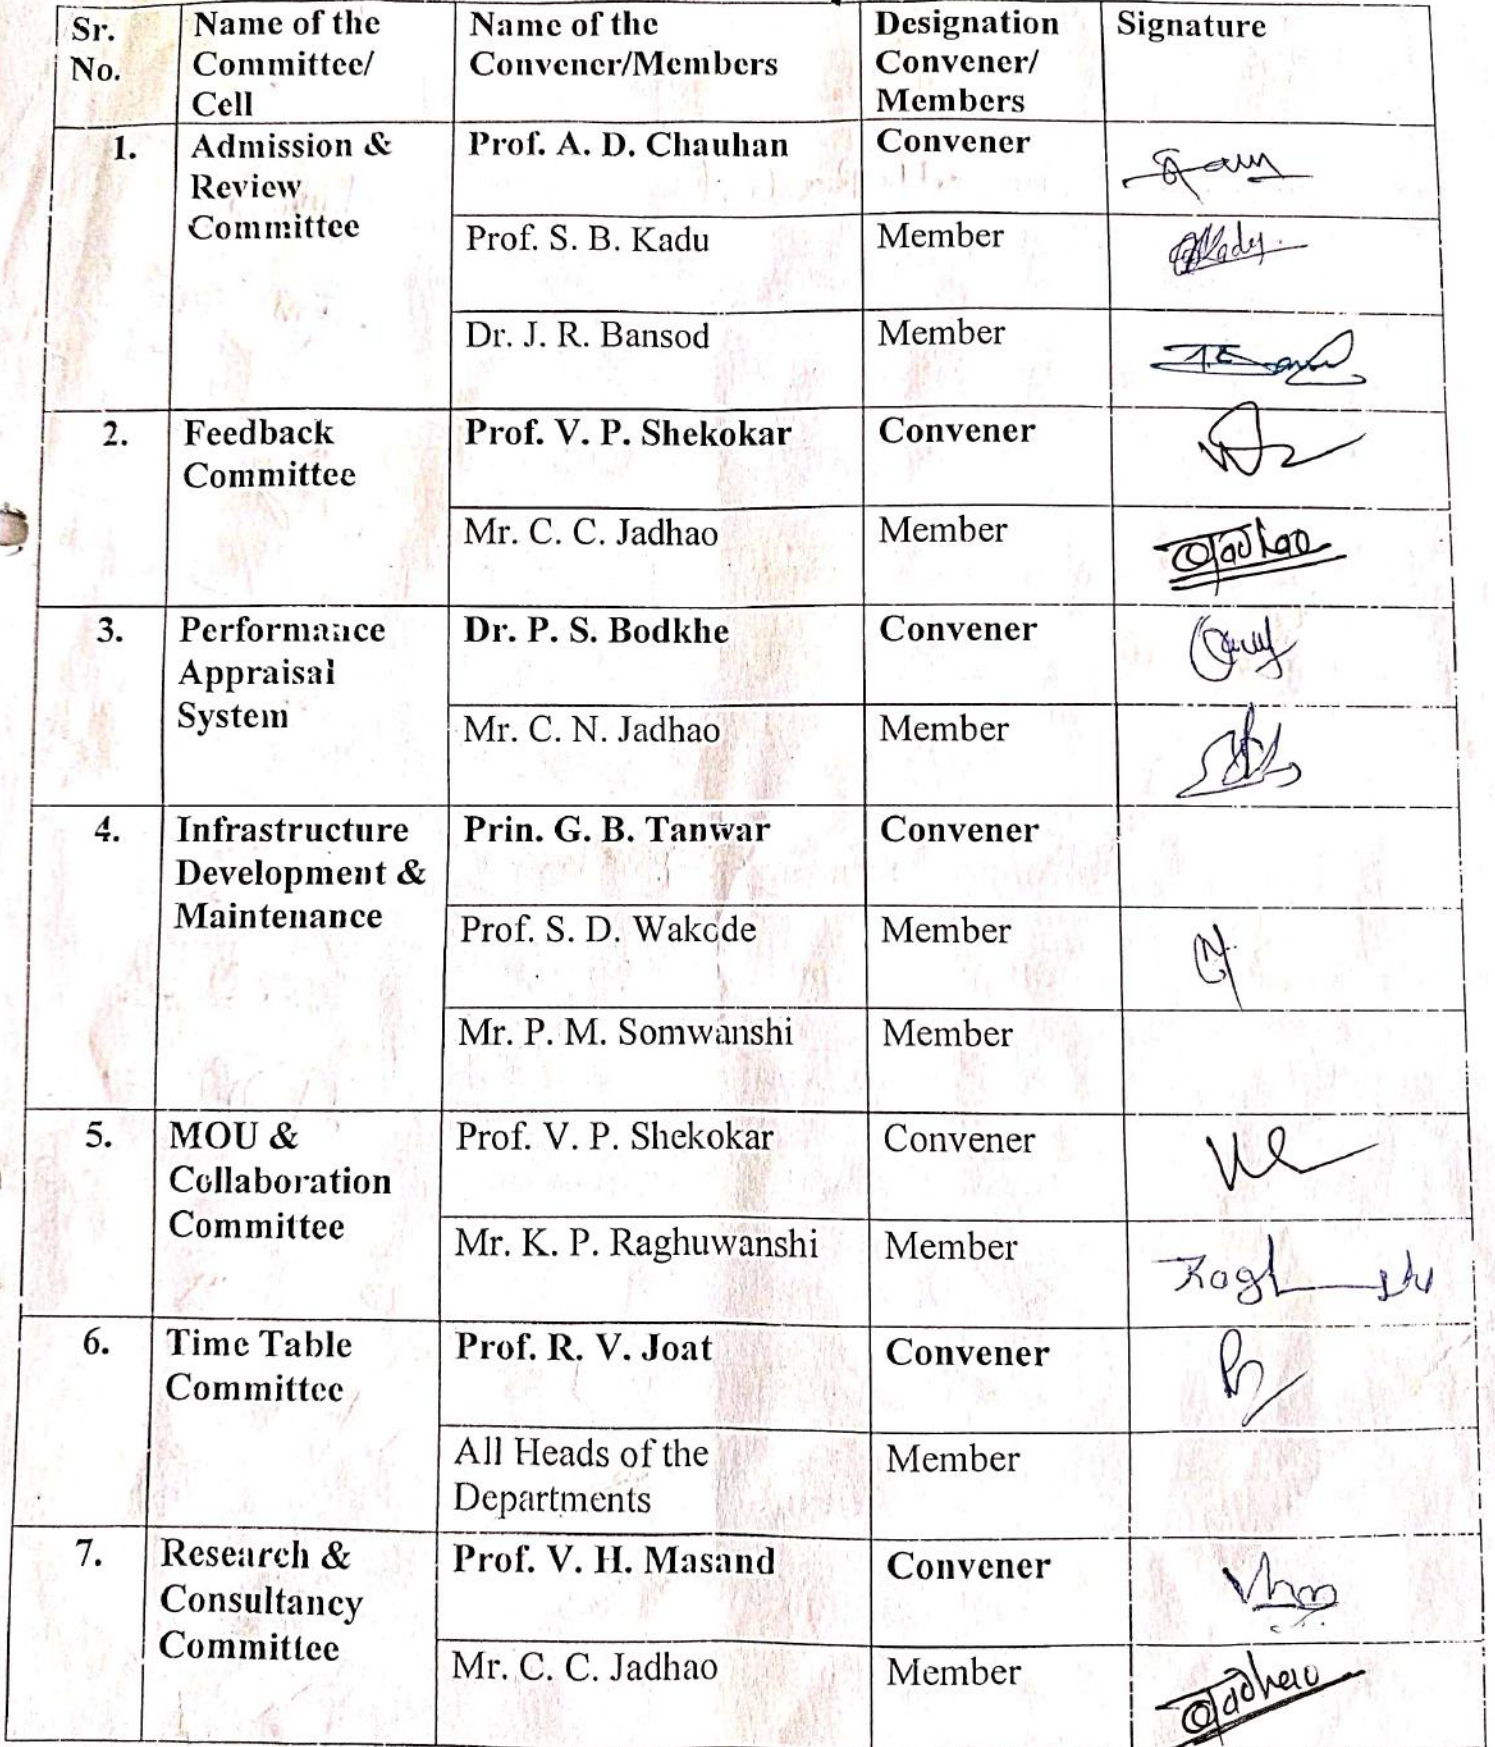 Sr. No.
Name of the Committee/ Cell
Name of the Convener/Members
Designation Convener/ Members
Signature
1.
Admission & Review Committee
Prof. A. D. Chauhan
Convener
Prof. S. B. Kadu
Member
Kadu
Dr. J. R. Bansod
Member
2.
Feedback Committee
Prof. V. P. Shekokar
Convener
Mr. C. C. Jadhao
Member
Jadhao
3.
Performance Appraisal System
Dr. P. S. Bodkhe
Convener
Mr. C. N. Jadhao
Member
4.
Infrastructure Development & Maintenance
Prin. G. B. Tanwar
Convener
Prof. S. D. Wakode
Member
Mr. P. M. Somwanshi
Member
5.
MOU & Collaboration Committee
Prof. V. P. Shekokar
Convener
Mr. K. P. Raghuwanshi
Member
6.
Time Table Committee
Prof. R. V. Joat
Convener
All Heads of the Departments
Member
7.
Research & Consultancy Committee
Prof. V. H. Masand
Convener
Mr. C. C. Jadhao
Member
Jadhao